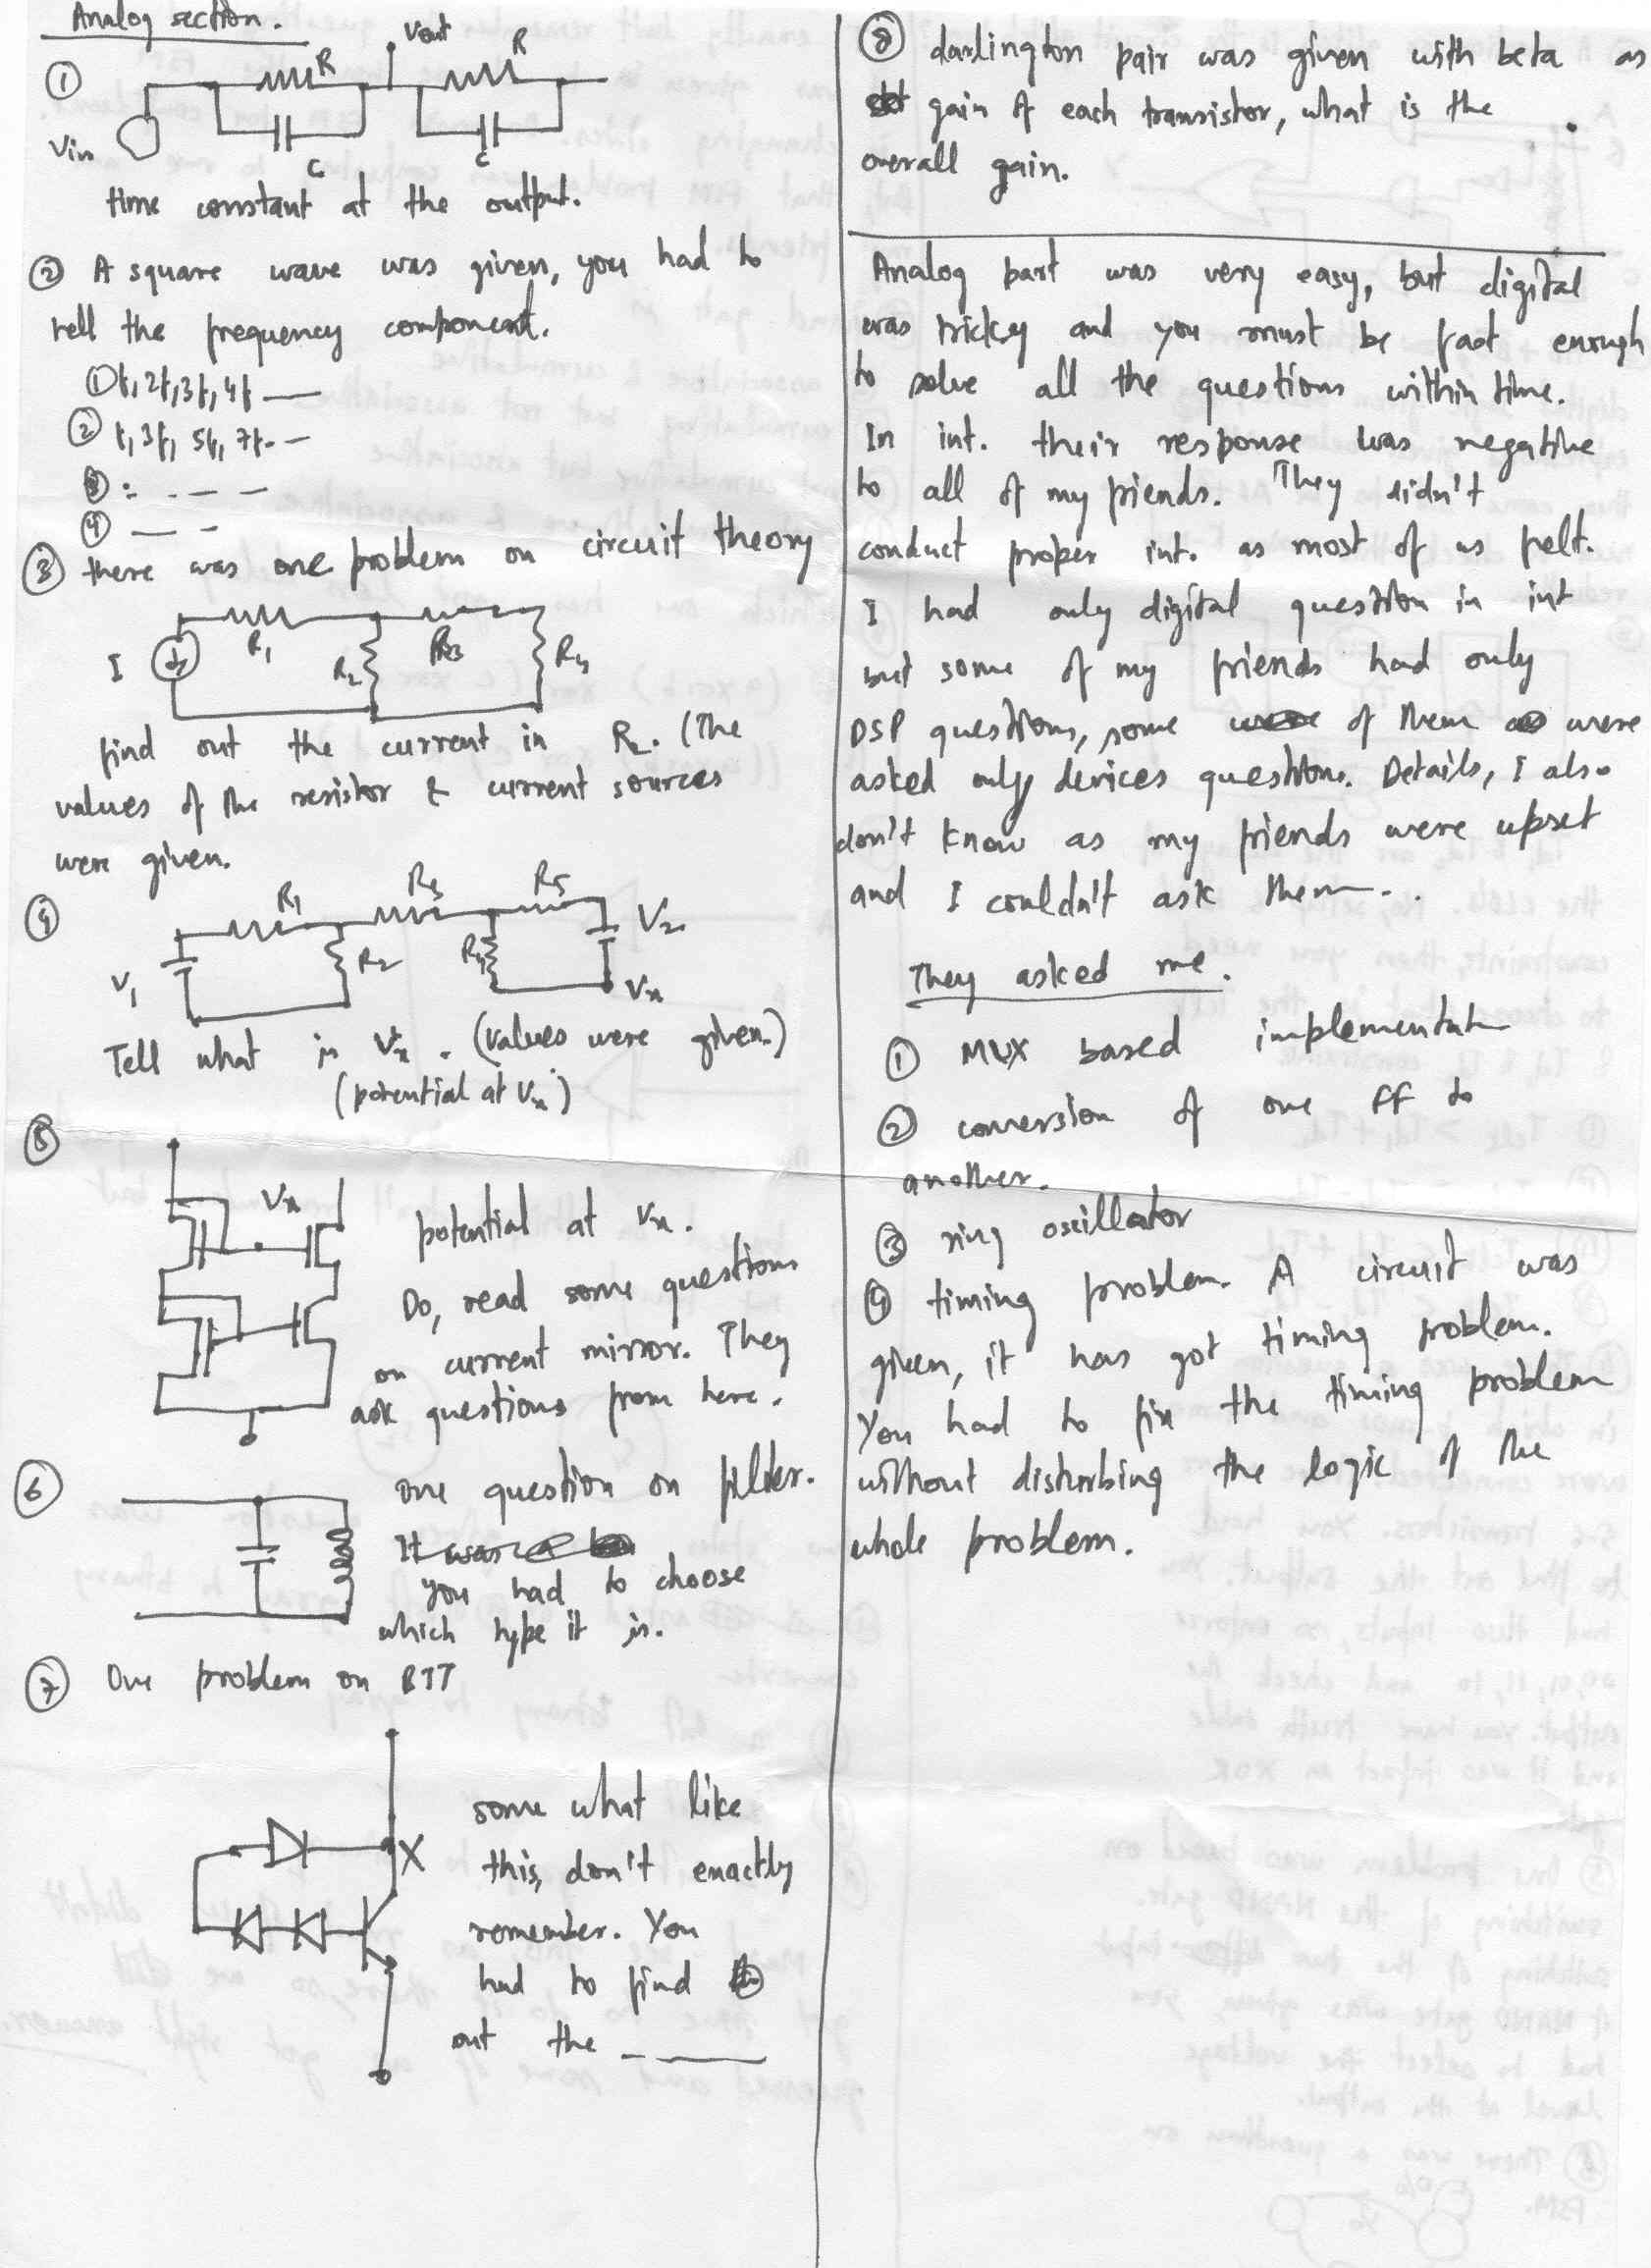 Analog section.
① R Vout R
Vin C C
time constant at the output.
② A square wave was given, you had to
tell the frequency component.
① f, 2f, 3f, 4f —
② f, 3f, 5f, 7f. —
③ : . — — —
④ — — -
③ there was one problem on circuit theory
I R1 R2 R3 R4
find out the current in R2. (The
values of the resistor & current sources
were given.
④ R1 R3 R5
V1 R2 R4 V2
Vx
Tell what is Vx. (values were given.)
(potential at Vx)
⑤ Vx
potential at Vx.
Do, read some questions
on current mirror. They
ask questions from here.
⑥ one question on filter.
It was a
you had to choose
which type it is.
⑦ One problem on BJT
X
some what like
this, don't exactly
remember. You
had to find
out the - ——
⑧ darlington pair was given with beta as
gain of each transistor, what is the
overall gain.
Analog part was very easy, but digital
was tricky and you must be fast enough
to solve all the questions within time.
In int. their response was negative
to all of my friends. They didn't
conduct proper int. as most of us felt.
I had only digital question in int
but some of my friends had only
DSP questions, some of them were
asked only devices questions. Details, I also
don't know as my friends were upset
and I couldn't ask them - .
They asked me.
① MUX based implementatn
② conversion of one FF to
another.
③ ring oscillator
④ timing problem. A circuit was
given, it has got timing problem.
You had to fix the timing problem
without disturbing the logic of the
whole problem.